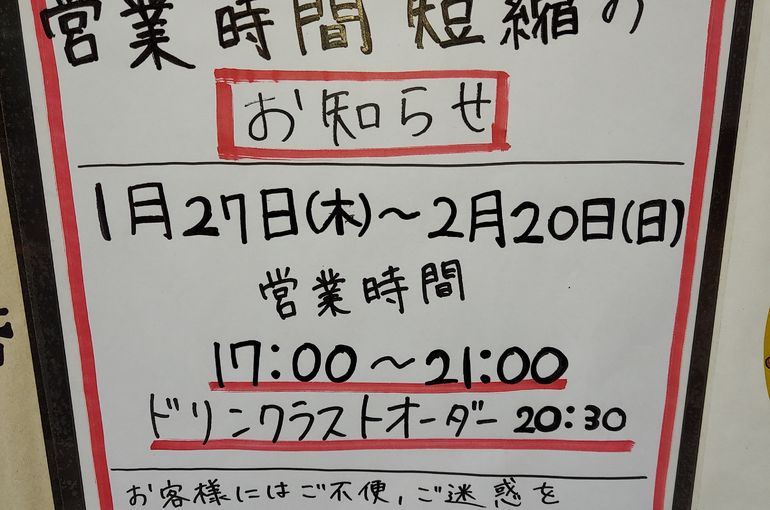 営業時間短縮の
お知らせ
1月27日(木)～2月20日(日)
営業時間
17:00～21:00
ドリンクラストオーダー 20:30
お客様にはご不便,ご迷惑を